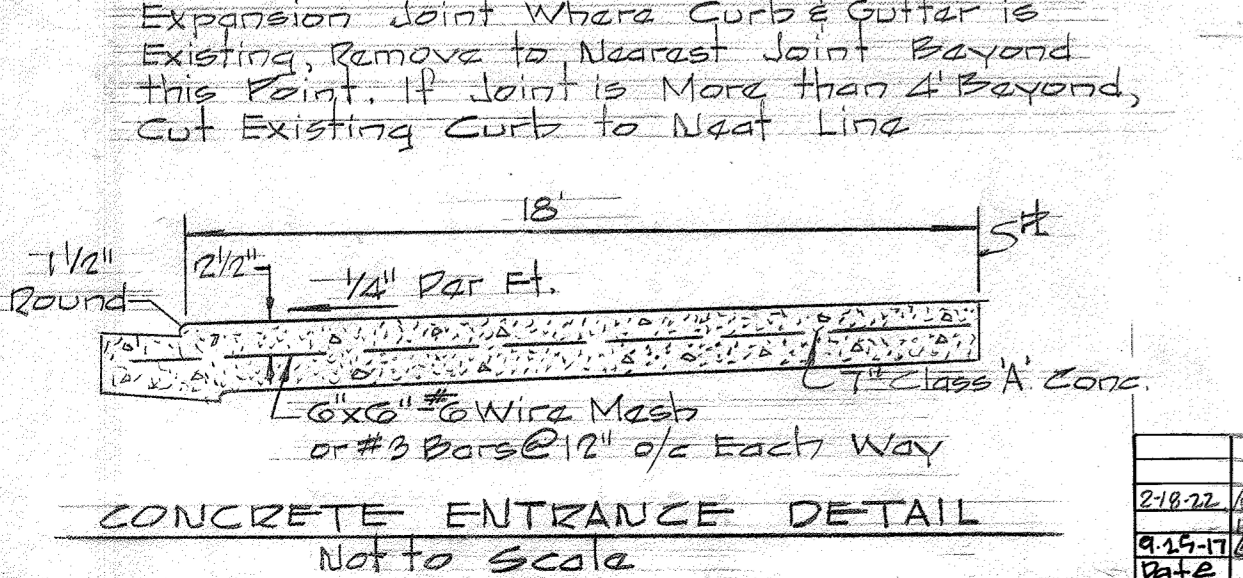 Expansion Joint Where Curb & Gutter is
Existing, Remove to Nearest Joint Beyond
this Point. If Joint is More than 4' Beyond,
Cut Existing Curb to Neat Line
18'
1 1/2"
Round
2 1/2"
1/4" Per Ft.
7" Class 'A' Conc.
6"x6" #6 Wire Mesh
or #3 Bars @ 12" o/c Each Way
CONCRETE ENTRANCE DETAIL
Not to Scale
2-18-22
9-25-17
Date